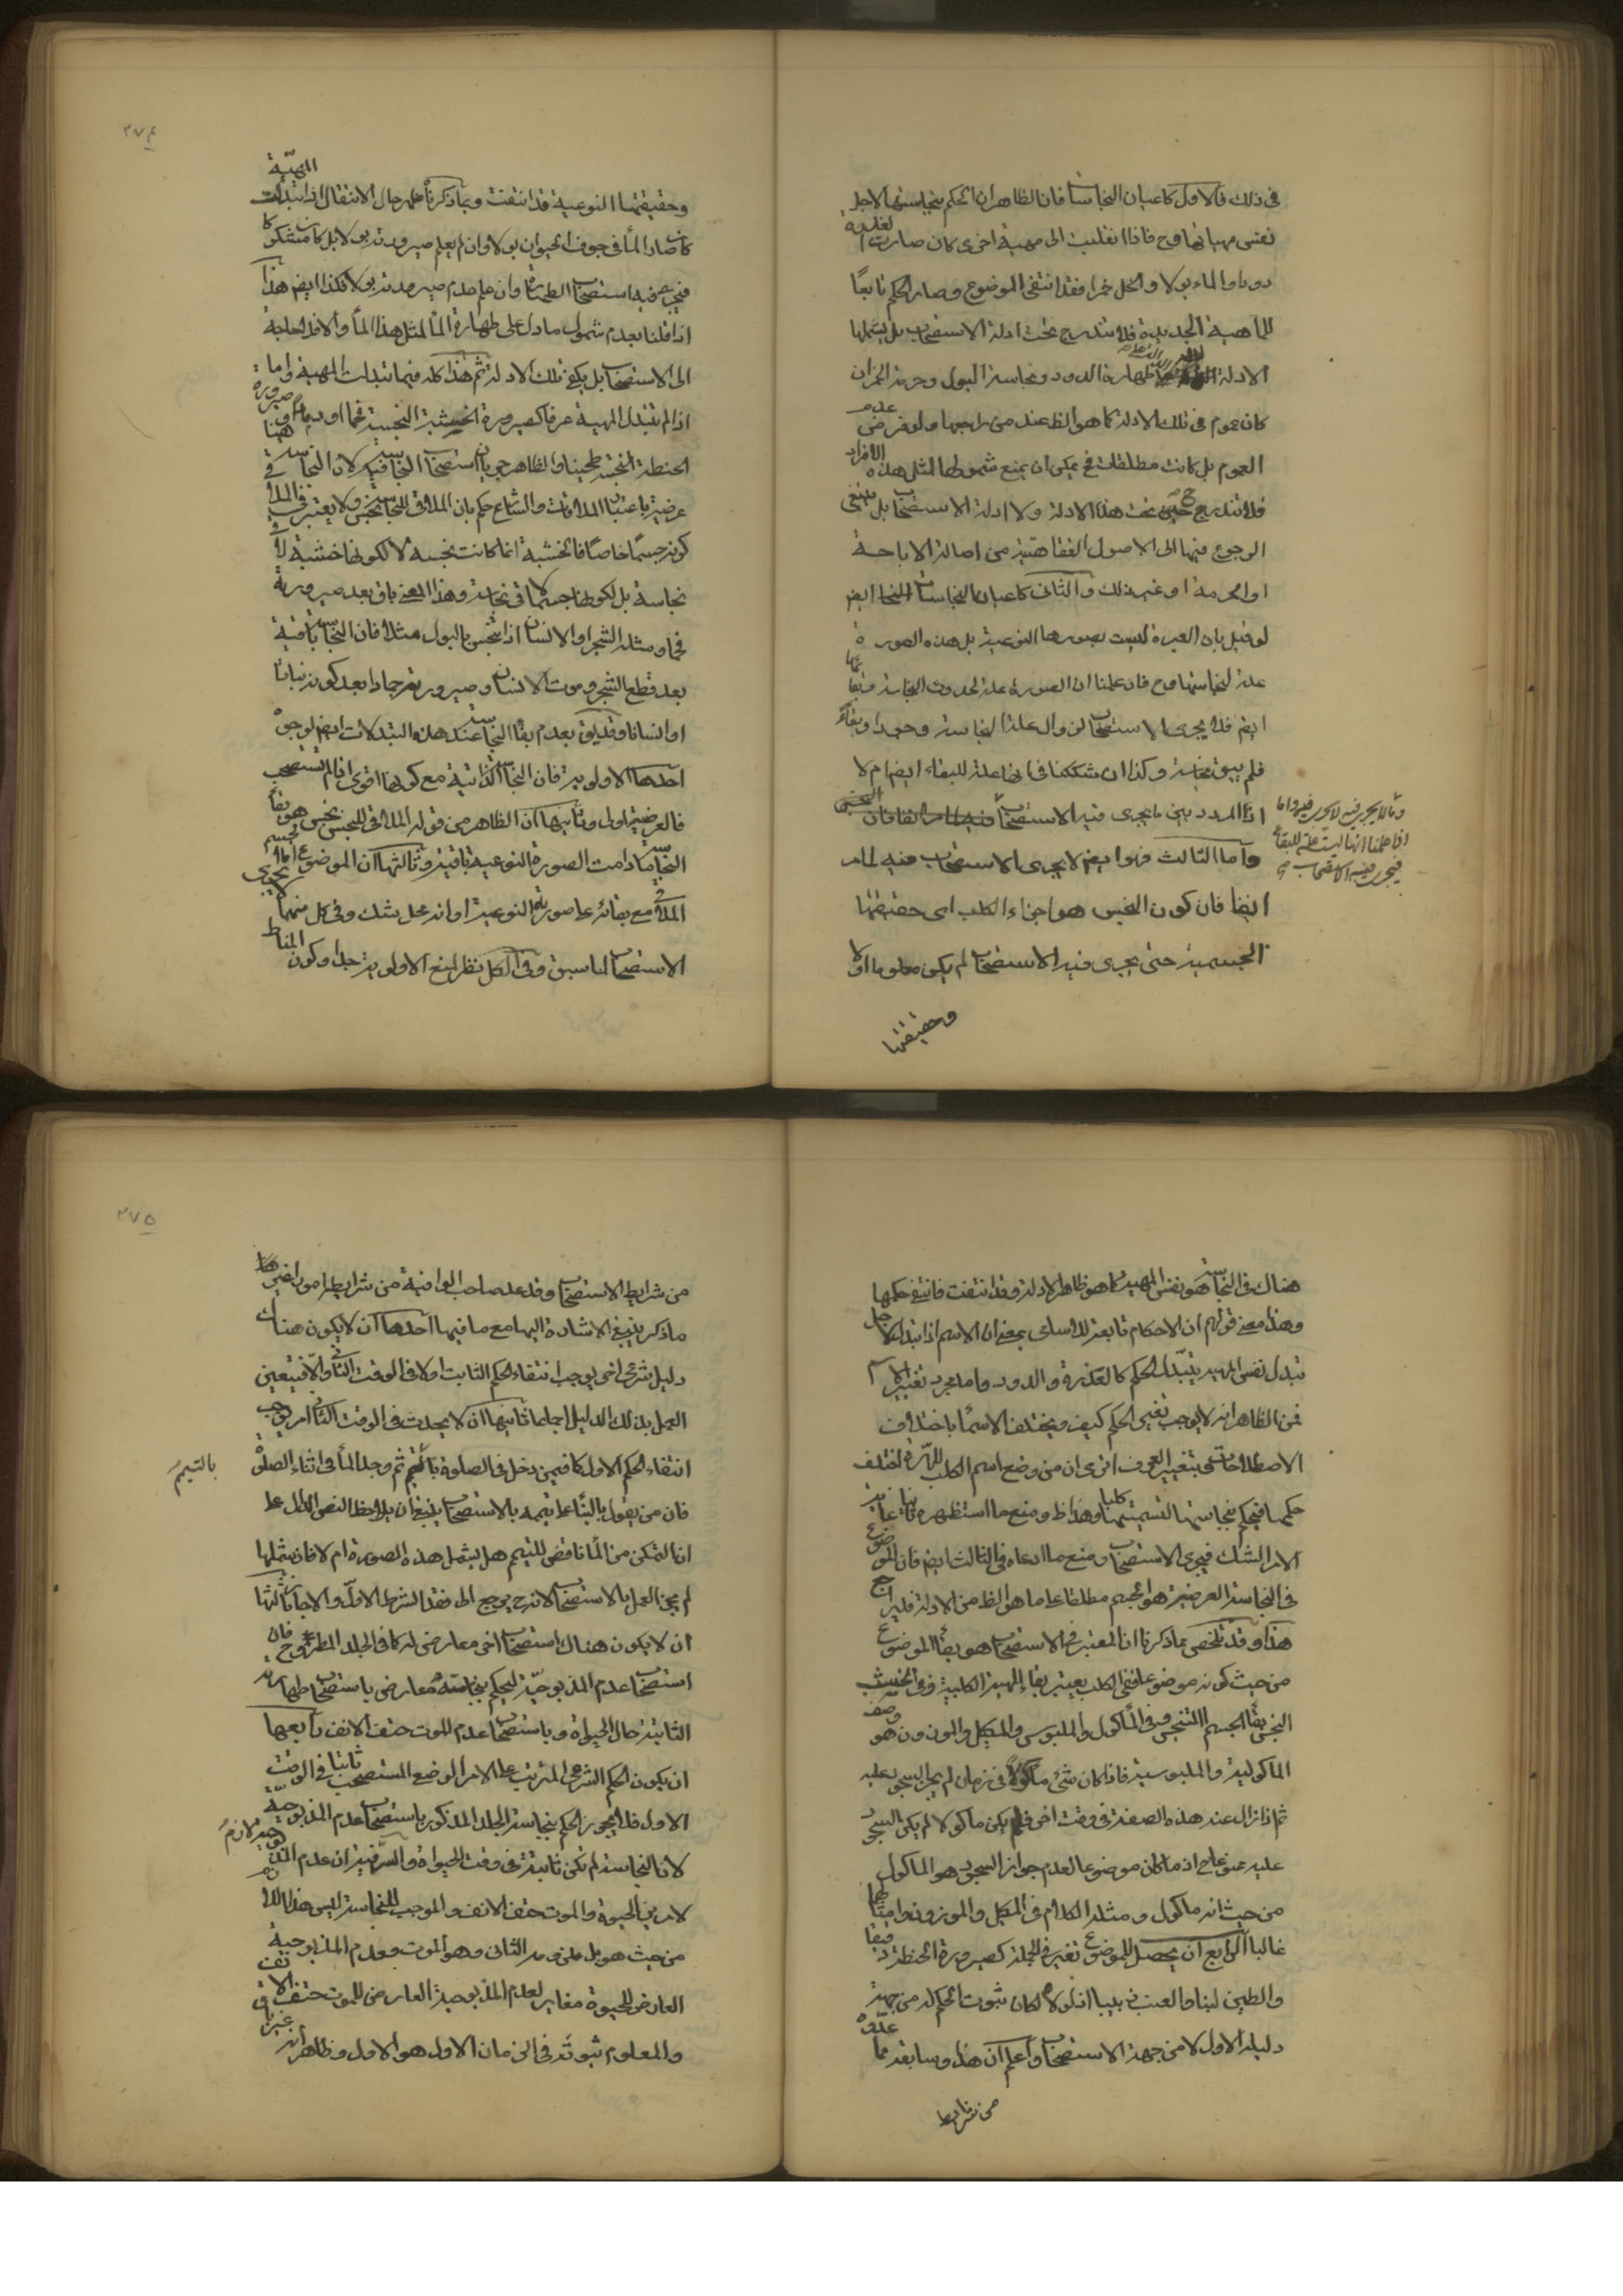 فى ذلك فالاول كاعيان النجاسات فان الظاهران الحكم بنجاستها لاجل
نفس مهياتها وح فاذا انقلبت الى مهية اخرى كان صارت
دودا والماء بولا والخل خمرا فقد انتفى الموضوع وصار الحكم تابعًا
للماهية الجديدة فلا تندرج تحت ادلة الاستصحاب بل يشملها
الادلة طهارة الدود ونجاسة البول وحرمة الخمر ان
كان عموم فى تلك الادلة كما هو الظ عند من راجعها ولو فرض عدم
العموم بل كانت مطلقات فح يمكن ان يمنع شمولها لمثل هذه الافراد
فلا تندرج ح تحت هذا الادلة ولا ادلة الاستصحاب بل ينبغى
الرجوع فيها الى الاصول الفقاهتية من اصالة الاباحة
او الحرمة او غير ذلك والثانى كاعيان النجاسات ايض
لو قيل بان العبرة ليست بصورها النوعية بل هذه الصورة
علة لنجاستها وح فان علمنا ان الصورة علة لحدوث النجاسة وبقائها
ايض فلا يجرى الاستصحاب لزوال علة النجاسة وجودا وبقاءً
فلم يبق نجاسة وكذا ان شككنا فى انها علة للبقاء ايض ام لا
اذ المردد بين ما يجرى فيه الاستصحاب
وما لا يجرى فيه لا يجرى فيه واما
اذا علمنا انها ليست علة للبقاء
فيجرى فيه الاستصحاب
واما الثالث فهو ايض لا يجرى الاستصحاب فيه لما مر
انفا فان كون النجس هو اجزاء الكلب اى حقيقتها
الجسمية حتى يجرى فيه الاستصحاب لم يكن معلوما اولا
وحقيقتها
٢٧٤
المهيّة
وحقيقتها النوعية قد انتفت وبما ذكرنا ظهر حال الانتقال اذا تبدلت
كان صار المأ فى جوف الحيوان بولا وان لم يعلم صيرورته بولا بل كان مشكوكا
فيجرى فيه استصحاب الطهارة وان علم عدم صيرورته بولا فكذا ايض هذا
اذا قلنا بعدم شمول ما دل على طهارة المأ لمثل هذا المأ والا فلا حاجة
الى الاستصحاب بل يكفى تلك الادلة ثم هذا كله فيما تبدلت المهية واما
اذا لم تتبدل المهية عرفا كصيرورة الخشبة النجسة فحما او رمادا وصيرورة
الحنطة النجسة طحينا فالظاهر جريان استصحاب النجاسة فيه لان النجاسة هنا فى
عرضية باعتبار الملاقات والشارع حكم بان الملاقى للنجاسة نجس ولا يعتبر فى الملاقى
كونه جسمًا خاصًا فالخشبة انما كانت نجسة لا لكونها خشبة لاقى
نجاسة بل لكونها جسما لاقى نجاسة وهذا المعنى باق بعد صيرورته
فحما ومثله الشجر او الانسان اذا تنجس بالبول مثلا فان النجاسة باقية
بعد قطع الشجر وموت الانسان وصيرورته جمادا بعد كونه نباتا
او انسانا وقد يق بعدم بقأ النجاسة عند هذه التبدلات ايض لوجوه
احدها الاولوية فان النجاسة الذاتية مع كونها اقوى اذا لم تستصحب
فالعرضية اولى وثانيها ان الظاهر من قوله الملاقى للنجس نجس هو بقأ
النجاسة ما دامت الصورة النوعية باقية وثالثها ان الموضوع اما الجسم
الملاقى مع بقائه على صورته النوعية او انه محل شك وفى كل منهما لا يجرى
الاستصحاب لما سبق وفى الكل نظر لمنع الاولوية جدا وكون المناط
هناك فى النجاسة هو نفس المهية كما هو ظاهر الادلة وقد انتفت فانتفى حكمها
وهذا معنى قولهم ان الاحكام تابعة للاسامى بمعنى ان الاسم اذا تبدل لاجل
تبدل نفس المهية يتبدل الحكم كالعذرة والدود واما مجرد تغيير الاسم
فمن الظاهر انه لا يوجب تغيير الحكم كيف ويختلف الاسمأ باختلاف
الاصطلاحات بتغيير العرف اترى ان من وضع اسم الكلب للهرة اختلف
حكمها فيحكم بنجاستها لتسميتها كلبا وهذا ظ ومنع ما استظهره ثانيا غاية
الامر الشك فيجرى الاستصحاب ومنع ما ادعاه فى الثالث ايض فان الموضوع
فى النجاسة العرضية هو الجسم مطلقا على ما هو الظ من الادلة فليراجع
هذا وقد تلخص بما ذكرنا ان المعتبر فى الاستصحاب هو بقأ الموضوع
من حيث كونه موضوعا ففى الكلب يعتبر بقاء المهية الكلبية وفى الخشب
النجس بقأ الجسم المتنجس وفى المأكول والملبوس والمكيل والموزون هو وصف
الماكولية والملبوسية فاذا كان شئ ماكولاً فى زمان لم يجز السجود عليه
ثم اذا زال عنه هذه الصفة فى وقت اخر فلم يكن ماكولا لم يكن السجود
عليه ممنوعا ح اذ ما كان موضوعا لعدم جواز السجود هو الماكول
من حيث انه ماكول ومثله الكلام فى المكيل والموزون وامثالها
غالبا الرابع ان يحصل للموضوع تغير فى الجملة كصيرورة الحنطة دقيقا
والطين لبنا والعنب زبيبا اذ لولاه لكان ثبوت الحكم له من جهة
دليله الاول لا من جهة الاستصحاب واعلم ان هذا وسابقه مما عدّوه
من شرايط
٢٧٥
من شرايط الاستصحاب وقد عد صاحب الوافية من شرايطه امورا غير ما
ماذكر ينبغى الاشارة اليها مع ما فيها احدها ان لا يكون هناك
دليل شرعى اخر يوجب انتفاء الحكم الثابت اولا فى الوقت الثانى والا فيتعين
العمل بذلك الدليل اجماعا ثانيها ان لا يحدث فى الوقت الثانى امر يوجب
انتفاء الحكم الاول كما فيمن دخل فى الصلوة بالتيمم ثم وجد المأ فى اثناء الصلوة
بالتيمم
فان من يقول بالبناء على تيممه بالاستصحاب ينبغى ان يلاحظ النص الدال على
ان التمكن من المأ ناقض للتيمم هل يشمل هذه الصورة ام لا فان شملها
لم يجز العمل بالاستصحاب لانه ح يرجع الى فقد الشرط الاول والا جاز ثالثها
ان لا يكون هناك استصحاب اخر معارض له كما فى الجلد المطروح فان
استصحاب عدم المذبوحية للحكم بنجاسته معارض باستصحاب طهارته
الثابتة حال الحيوة وباستصحاب عدم الموت حتف الانف رابعها
ان يكون الحكم الشرعى المترتب على الامر الوضعى المستصحب ثابتا فى الوقت
الاول فلا يجوز الحكم بنجاسة الجلد المذكور باستصحاب عدم المذبوحية
لان النجاسة لم تكن ثابتة فى وقت الحيوة والسر فيه ان عدم المذبوحية لازم
لامرين الحيوة والموت حتف الانف والموجب للنجاسة ليس هذا اللازم
من حيث هو بل ملزومه الثانى وهو الموت وعدم المذبوحية
العارض للحيوة مغاير لعدم المذبوحية العارض للموت حتف الانف
والمعلوم ثبوته فى الزمان الاول هو الاول وظاهر انه غير باق فى